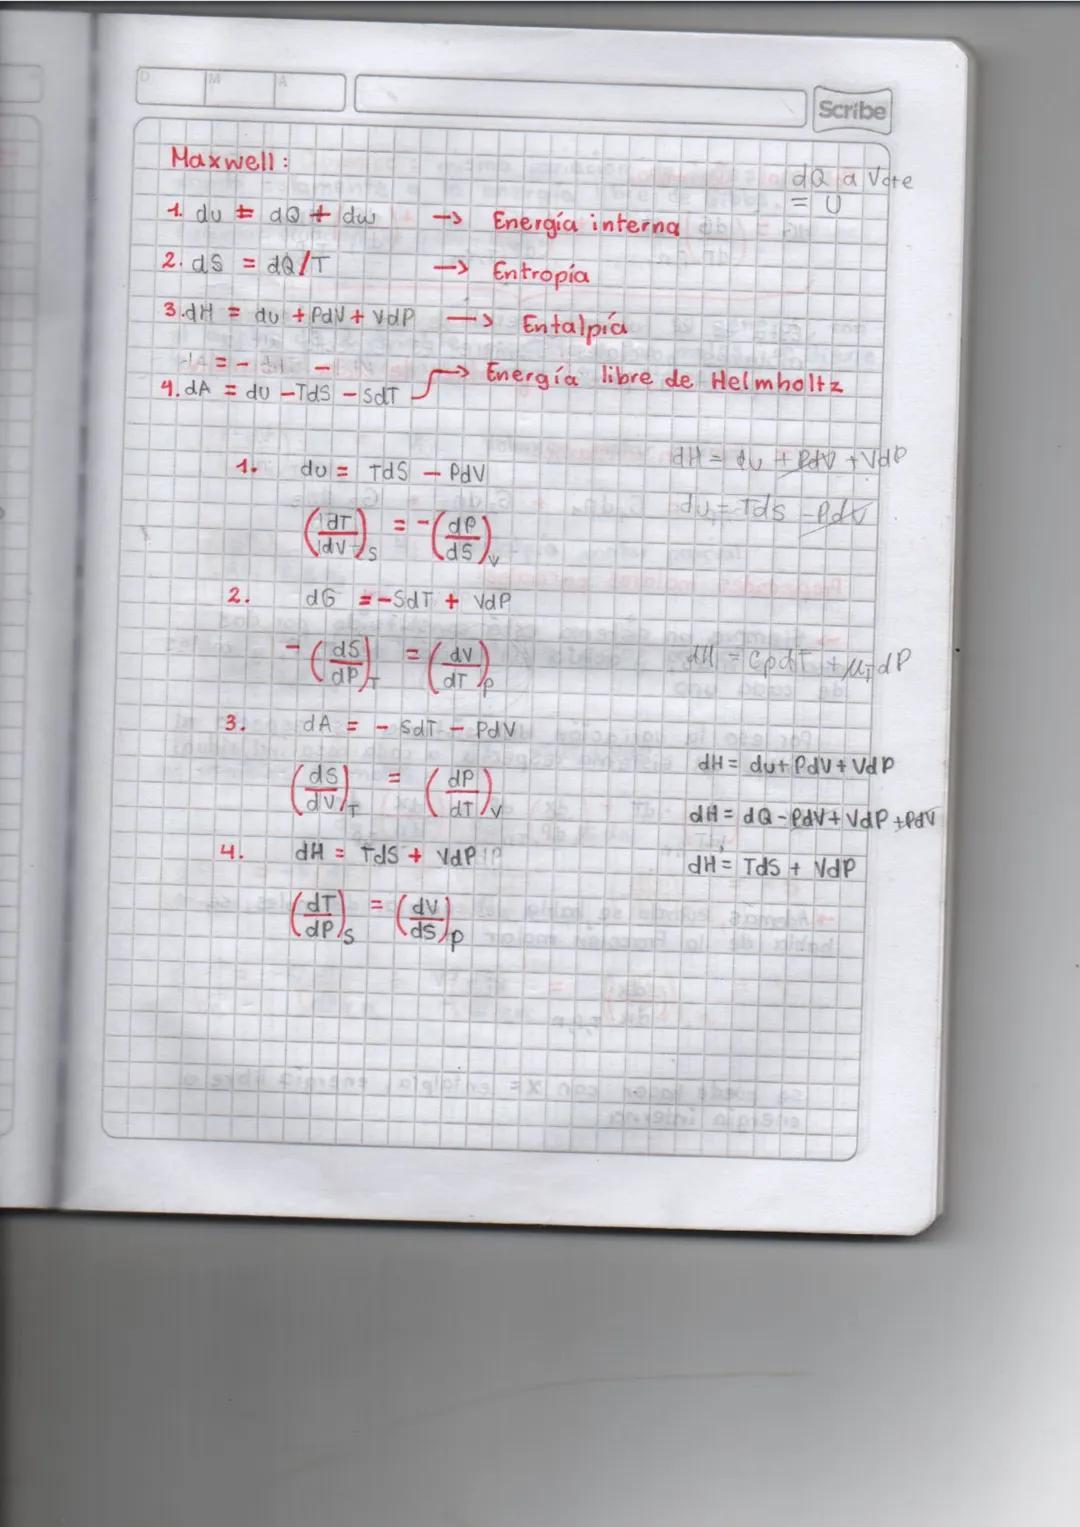 D M A
Scribe
Maxwell:
dQ a Vcte
= U
1. du = dQ + dw → Energía interna
2. dS = dQ/T → Entropía
3. dH = du + PdV + VdP → Entalpía
4. dA = du - TdS - SdT → Energía libre de Helmholtz
dH = du + PdV + VdP
1. du = TdS - PdV
du = TdS - PdV
(dT/dV)S = -(dP/dS)V
2. dG = -SdT + VdP
-(dS/dP)T = (dV/dT)P
dH = CpdT + μTdP
3. dA = -SdT - PdV
dH = du + PdV + VdP
(dS/dV)T = (dP/dT)V
dH = dQ - PdV + VdP + PdV
4. dH = TdS + VdP
dH = TdS + VdP
(dT/dP)S = (dV/dS)P